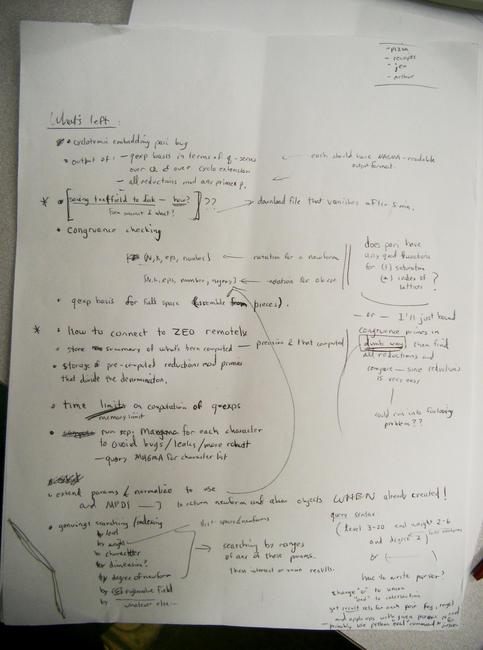 - pizza
- recupes
- jen
- arthur
What's left:
cyclotomic embedding pari bug
output of: - qexp basis in terms of q-series
over Q & over cyclo extension
- all reductions mod any prime p.
each should have MAGMA-readable
output format.
* [saving to effield to disk - how? ]??
from sqrt & what?
download file that vanishes after 5 min.
congruence checking
(N, k, eps, number) ← notation for a newform
(N, k, eps, number, ) ← notation for
does pari have
any good functions
for (1) saturation
(2) index of
lattices ?
qexp basis for full space (assemble from pieces).
- or - I'll just bound
congruence primes in
dumb way, then find
all reductions and
compare - since reductions
is very easy
could run into factoring
problem??
* how to connect to ZEO remotely
store summary of what's been computed - precision & that computed
storage of pre-computed reductions mod primes
that divide the denominator.
time limits on computation of qexps
memory limit
run sep. magma for each character
to avoid bugs/leaks/more robust
- query MAGMA for character list
extend params & normalize to use
and MPDI to return newform and objects WHEN already created!
genuinely searching/indexing
by level
by weight
by character
by dimension?
by degree of newform
by field
by whatever else...
list spaces/newforms
searching by ranges
of any of these params.
then intersect or union results.
query similar
(level 3-20 and weight 2-6
and degree 2)
or (
how to write parser?
change "or" to union
"and" to intersection
get result sets for each pair
and apply ops with given parens
- probably use python eval command